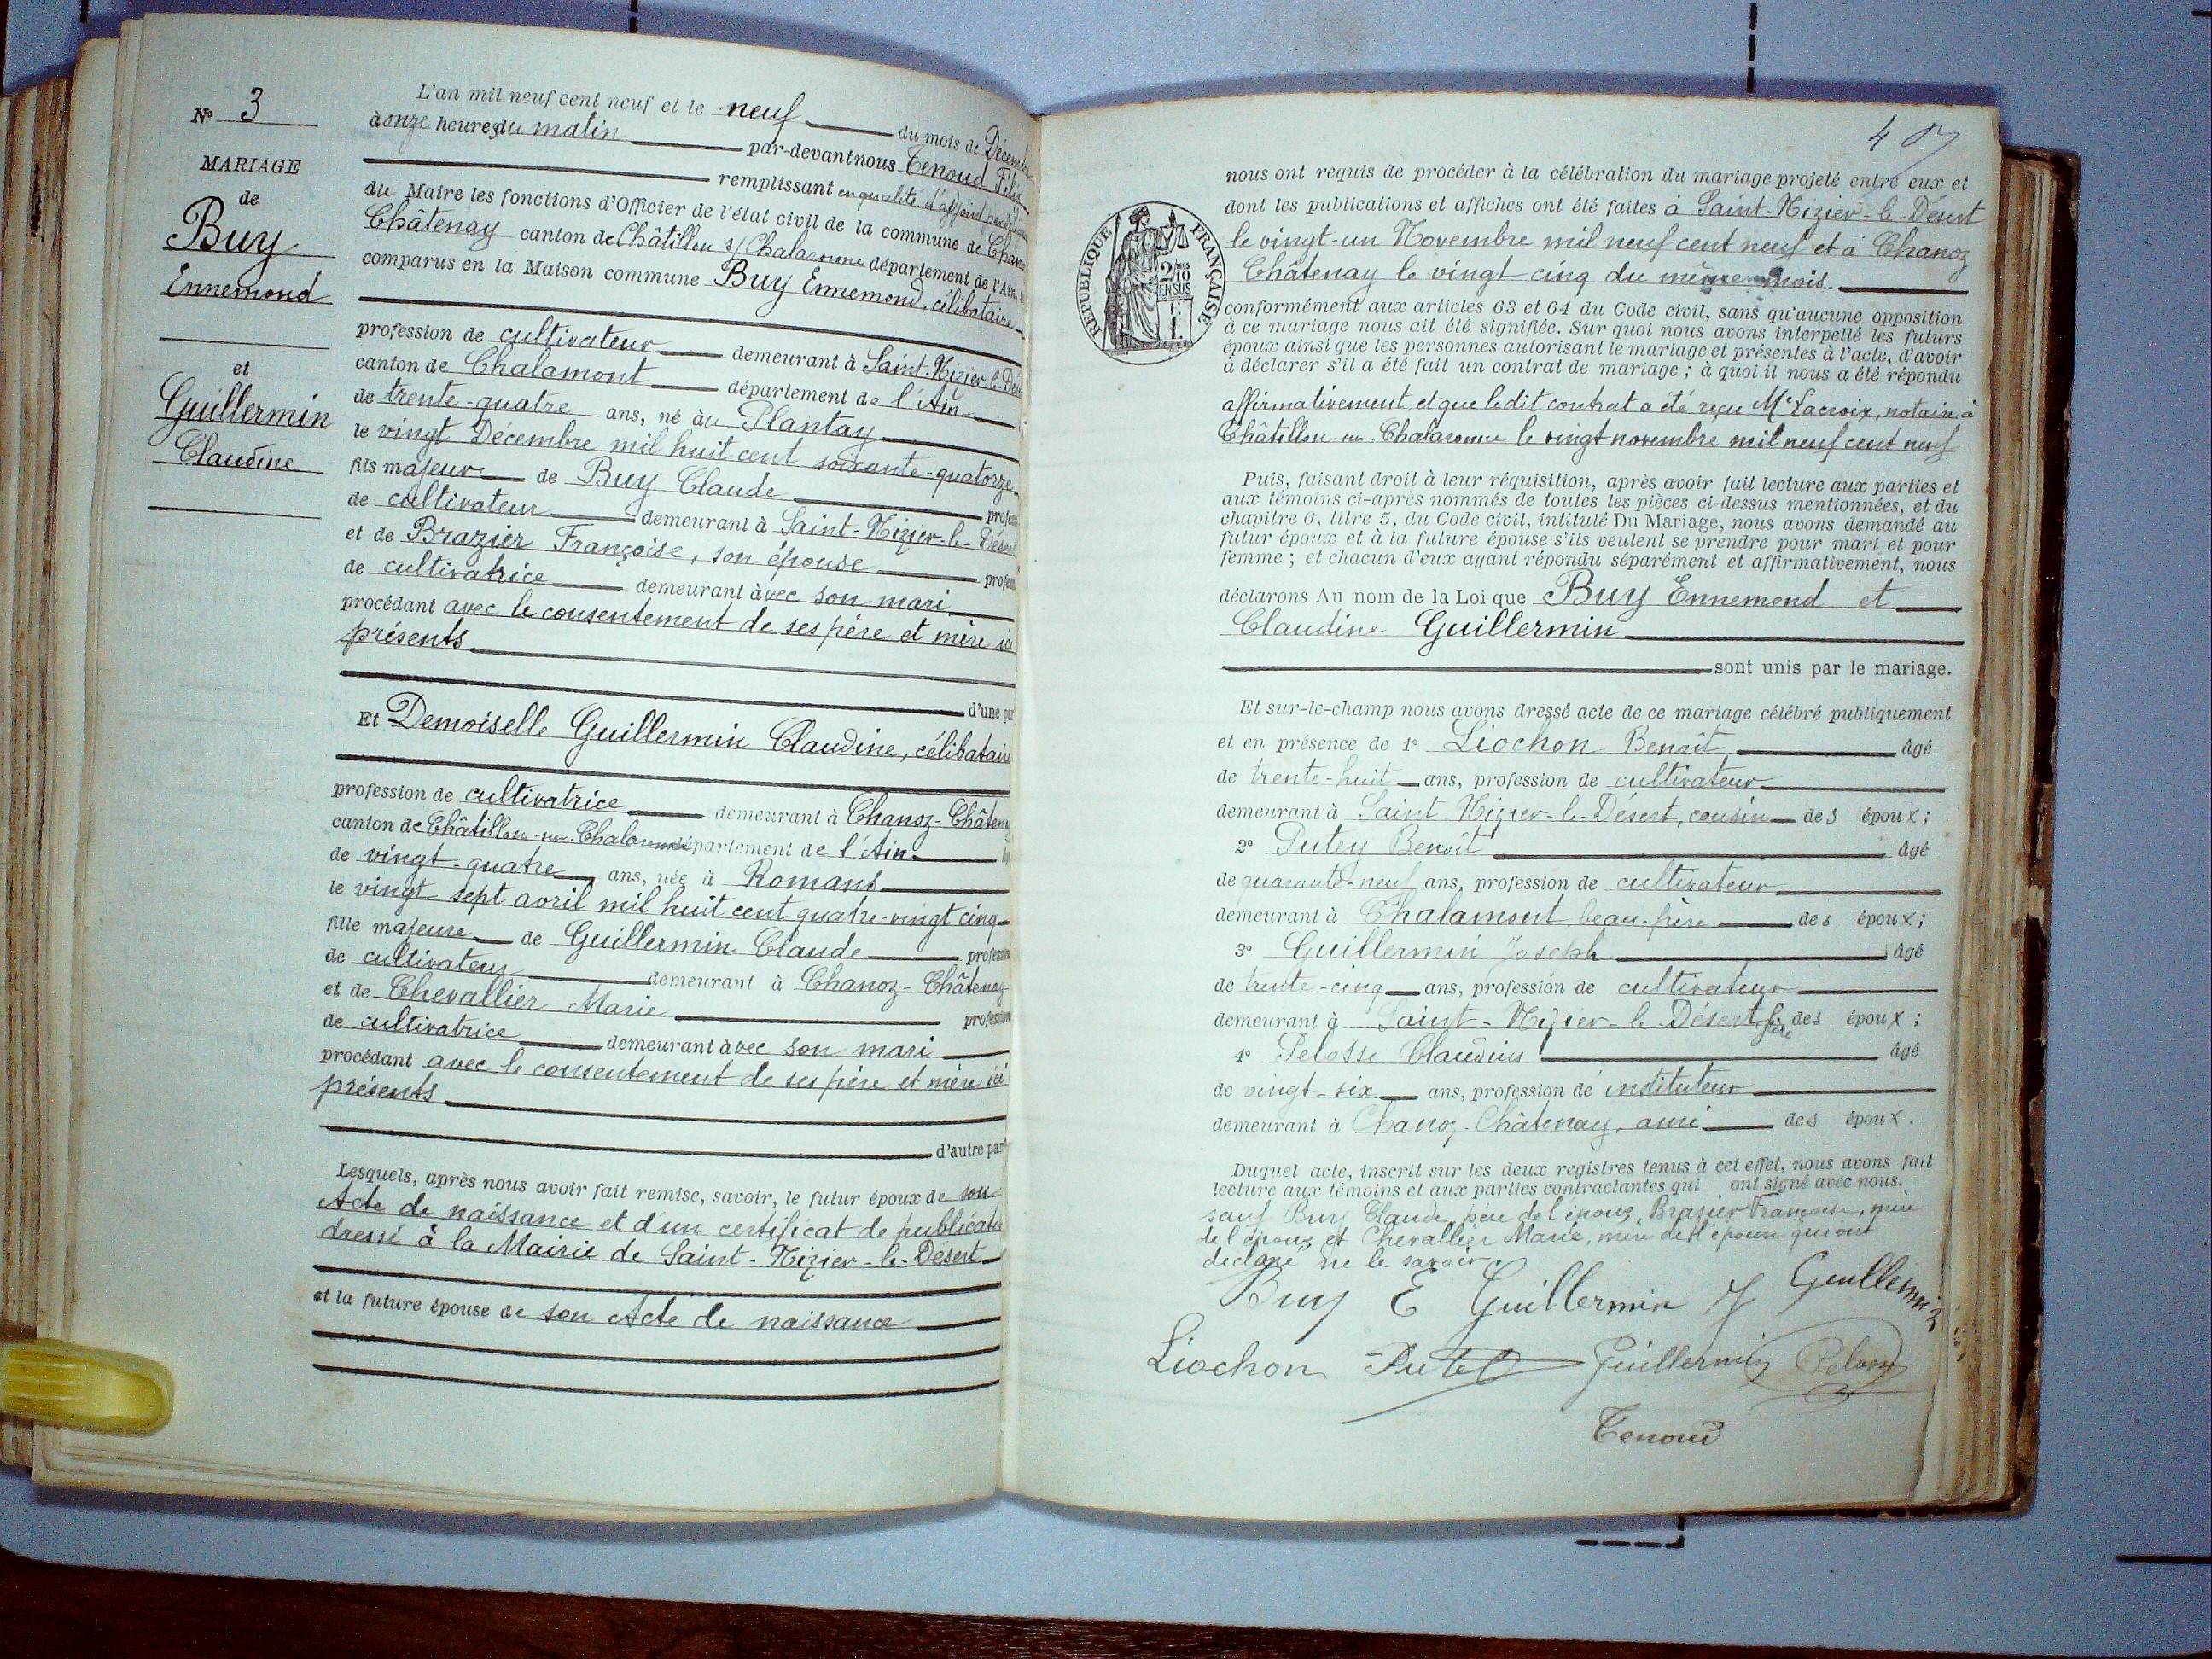 N° 3
MARIAGE
de
Buy
Ennemond
et
Guillermin
Claudine
L'an mil neuf cent neuf et le neuf du mois de Décembre
à onze heures du matin par-devant nous Tenoud Félix
remplissant en qualité d'adjoint par délégation
du Maire les fonctions d'Officier de l'état civil de la commune de Chanoz
Châtenay canton de Châtillon s/ Chalaronne département de l'Ain,
comparus en la Maison commune Buy Ennemond, célibataire
profession de cultivateur demeurant à Saint-Nizier-le-Désert
canton de Chalamont département de l'Ain
de trente-quatre ans, né au Plantay
le vingt Décembre mil huit cent soixante-quatorze
fils majeur de Buy Claude profession
de cultivateur demeurant à Saint-Nizier-le-Désert
et de Brazier Françoise, son épouse profession
de cultivatrice demeurant avec son mari
procédant avec le consentement de ses père et mère ici
présents
d'une part
Et Demoiselle Guillermin Claudine, célibataire
profession de cultivatrice demeurant à Chanoz-Châtenay
canton de Châtillon-sur-Chalaronne département de l'Ain
de vingt-quatre ans, née à Romans
le vingt sept avril mil huit cent quatre-vingt cinq
fille majeure de Guillermin Claude profession
de cultivateur demeurant à Chanoz-Châtenay
et de Chevallier Marie profession
de cultivatrice demeurant avec son mari
procédant avec le consentement de ses père et mère ici
présents
d'autre part
Lesquels, après nous avoir fait remise, savoir, le futur époux de son
Acte de naissance et d'un certificat de publication
dressé à la Mairie de Saint-Nizier-le-Désert
et la future épouse de son Acte de naissance
nous ont requis de procéder à la célébration du mariage projeté entre eux et
dont les publications et affiches ont été faites à Saint-Nizier-le-Désert
le vingt-un Novembre mil neuf cent neuf et à Chanoz
Châtenay le vingt cinq du même mois
RÉPUBLIQUE FRANÇAISE
conformément aux articles 63 et 64 du Code civil, sans qu'aucune opposition
à ce mariage nous ait été signifiée. Sur quoi nous avons interpellé les futurs
époux ainsi que les personnes autorisant le mariage et présentes à l'acte, d'avoir
à déclarer s'il a été fait un contrat de mariage ; à quoi il nous a été répondu
affirmativement et que ledit contrat a été reçu Me Lacroix, notaire à
Châtillon-sur-Chalaronne le vingt novembre mil neuf cent neuf
Puis, faisant droit à leur réquisition, après avoir fait lecture aux parties et
aux témoins ci-après nommés de toutes les pièces ci-dessus mentionnées, et du
chapitre 6, titre 5, du Code civil, intitulé Du Mariage, nous avons demandé au
futur époux et à la future épouse s'ils veulent se prendre pour mari et pour
femme ; et chacun d'eux ayant répondu séparément et affirmativement, nous
déclarons Au nom de la Loi que Buy Ennemond et
Claudine Guillermin
sont unis par le mariage.
Et sur-le-champ nous avons dressé acte de ce mariage célébré publiquement
et en présence de 1° Liochon Benoît âgé
de trente-huit ans, profession de cultivateur
demeurant à Saint-Nizier-le-Désert, cousin des époux ;
2° Putey Benoît âgé
de quarante-neuf ans, profession de cultivateur
demeurant à Chalamont, beau-frère des époux ;
3° Guillermin Joseph âgé
de trente-cinq ans, profession de cultivateur
demeurant à Saint-Nizier-le-Désert frère des époux ;
4° Pelosse Claudius âgé
de vingt-six ans, profession de instituteur
demeurant à Chanoz-Châtenay, ami des époux.
Duquel acte, inscrit sur les deux registres tenus à cet effet, nous avons fait
lecture aux témoins et aux parties contractantes qui ont signé avec nous.
sauf Buy Claude, père de l'époux, Brasier Françoise, mère
de l'époux et Chevallier Marie, mère de l'épouse qui ont
déclaré ne le savoir
Buy E Guillermin Guillermin
Liochon Guillermin
Tenoud